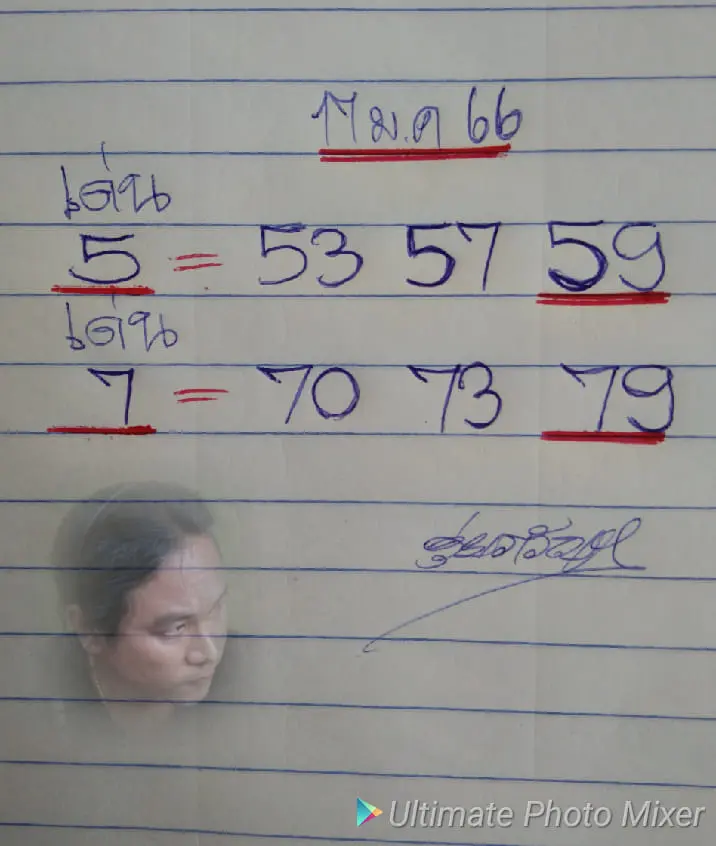 17 ม.ค 66
เด่น
5 = 53 57 59
เด่น
7 = 70 73 79
Ultimate Photo Mixer